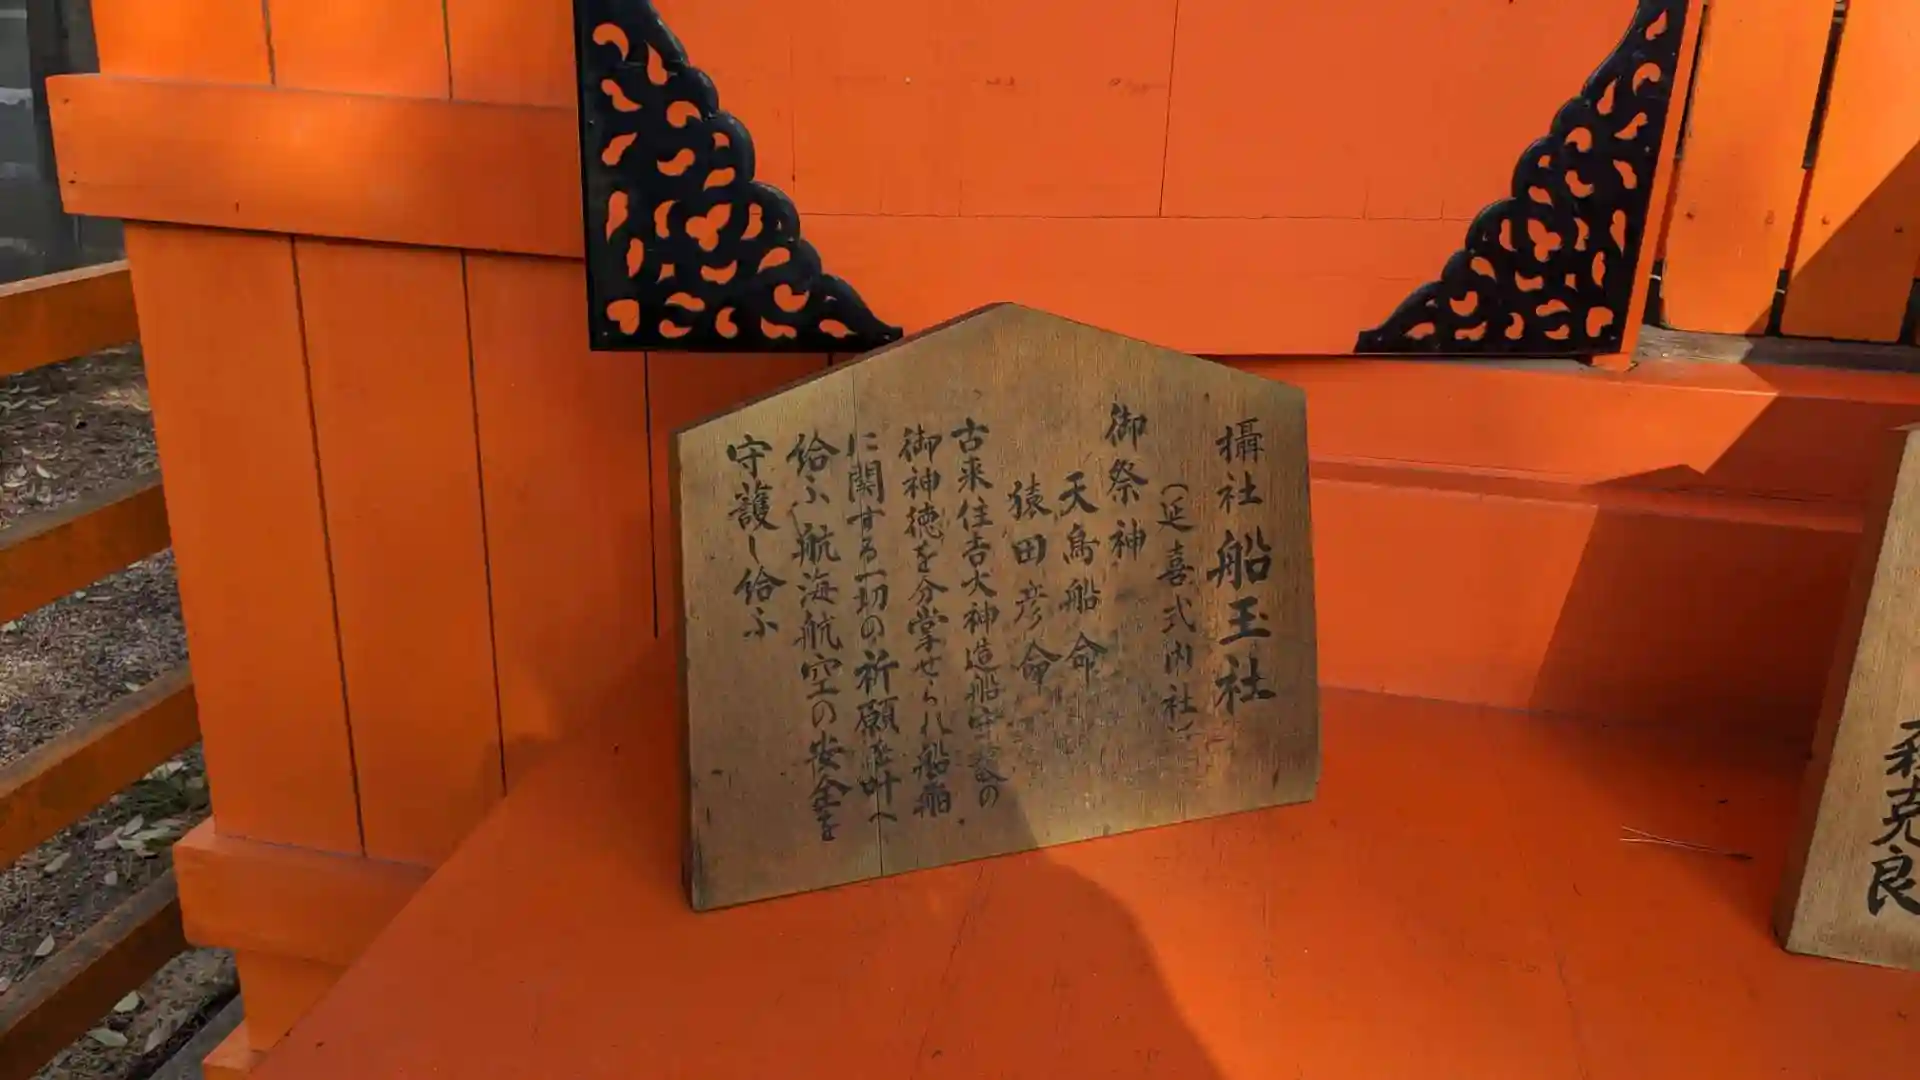 攝社 船玉社
(延喜式内社)
御祭神
天鳥船命
猿田彦命
古来住吉大神造船守護の
御神徳を分掌せられ船舶
に関する一切の祈願を叶へ
給ふ航海航空の安全を
守護し給ふ
森克良